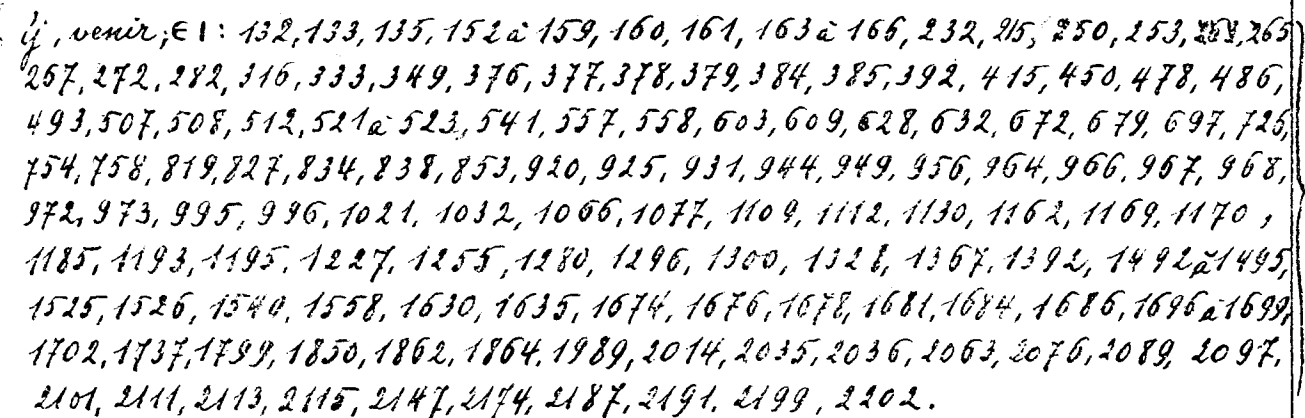 ij, venir; ∈ I: 132, 133, 135, 152 à 159, 160, 161, 163 à 166, 232, 215, 250, 253, 265
267, 272, 282, 316, 333, 349, 376, 377, 378, 379, 384, 385, 392, 415, 450, 478, 486,
493, 507, 508, 512, 521 à 523, 541, 557, 558, 603, 609, 628, 632, 672, 679, 697, 726,
754, 758, 819, 827, 834, 838, 853, 920, 925, 931, 944, 949, 956, 964, 966, 967, 968,
972, 973, 995, 996, 1021, 1032, 1066, 1077, 1109, 1112, 1130, 1162, 1169, 1170,
1185, 1193, 1195, 1227, 1255, 1280, 1296, 1300, 1328, 1367, 1392, 1492 à 1495,
1525, 1526, 1540, 1558, 1630, 1635, 1674, 1676, 1678, 1681, 1684, 1686, 1696 à 1699,
1702, 1737, 1799, 1850, 1862, 1864, 1989, 2014, 2035, 2036, 2063, 2076, 2089, 2097,
2101, 2111, 2113, 2115, 2147, 2174, 2187, 2191, 2199, 2202.